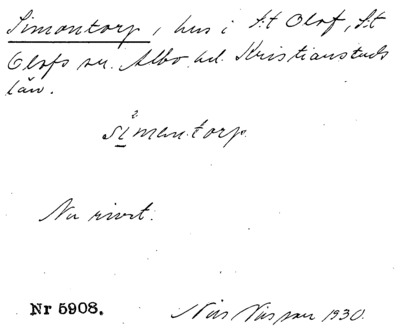 Simontorp, hus i S:t Olof, S:t
Olofs sn. Albo hd. Kristianstads
län.
simentorp.
Nu rivet.
Nr 5908.
Nils 1930.